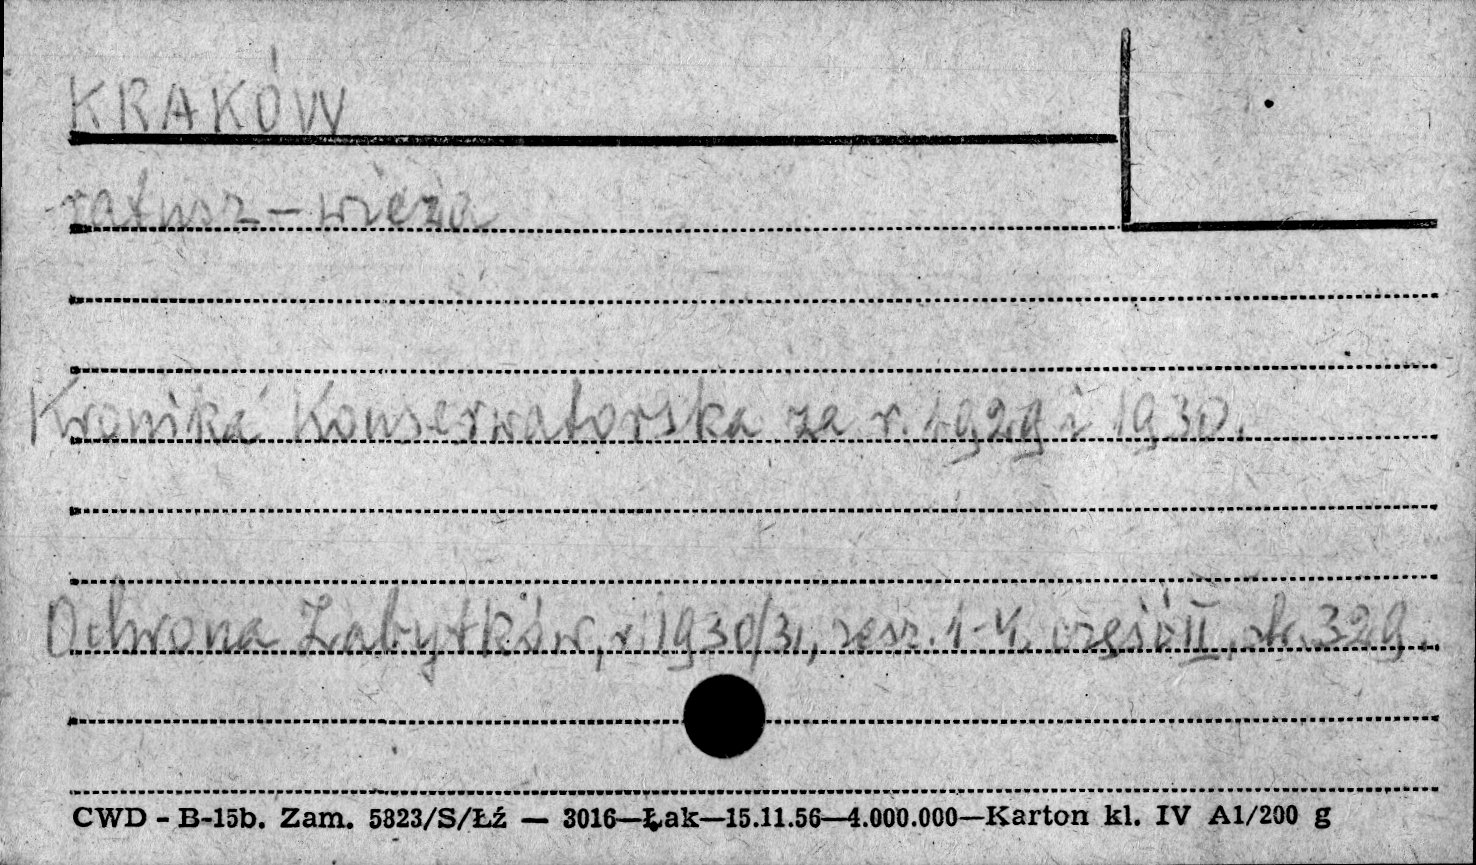 KRAKÓW
ratusz – wieża
Kronika Konserwatorska za r. 1929 i 1930.
Ochrona Zabytków, r. 1930/31, zesz. 1-4, część II, str. 329.
CWD - B-15b. Zam. 5823/S/Łź — 3016—Łak—15.11.56—4.000.000—Karton kl. IV A1/200 g